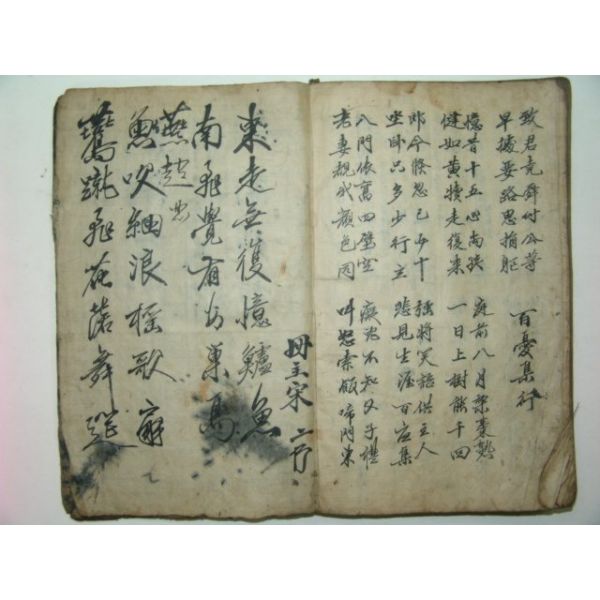 致君堯舜付公等
早據要路思捐軀
百憂集行
憶昔十五心尚孩
健如黃犢走復來
庭前八月梨棗熟
一日上樹能千回
即今倏忽已五十
坐卧只多少行立
強將笑語供主人
悲見生涯百憂集
入門依舊四壁空
老妻覩我顏色同
癡兒不知父子禮
叫怒索飯啼門東
東走無復憶鱸魚
南飛覺有安巢鳥
燕趙
魚吹細浪搖歌扇
蹴飛花落舞筵